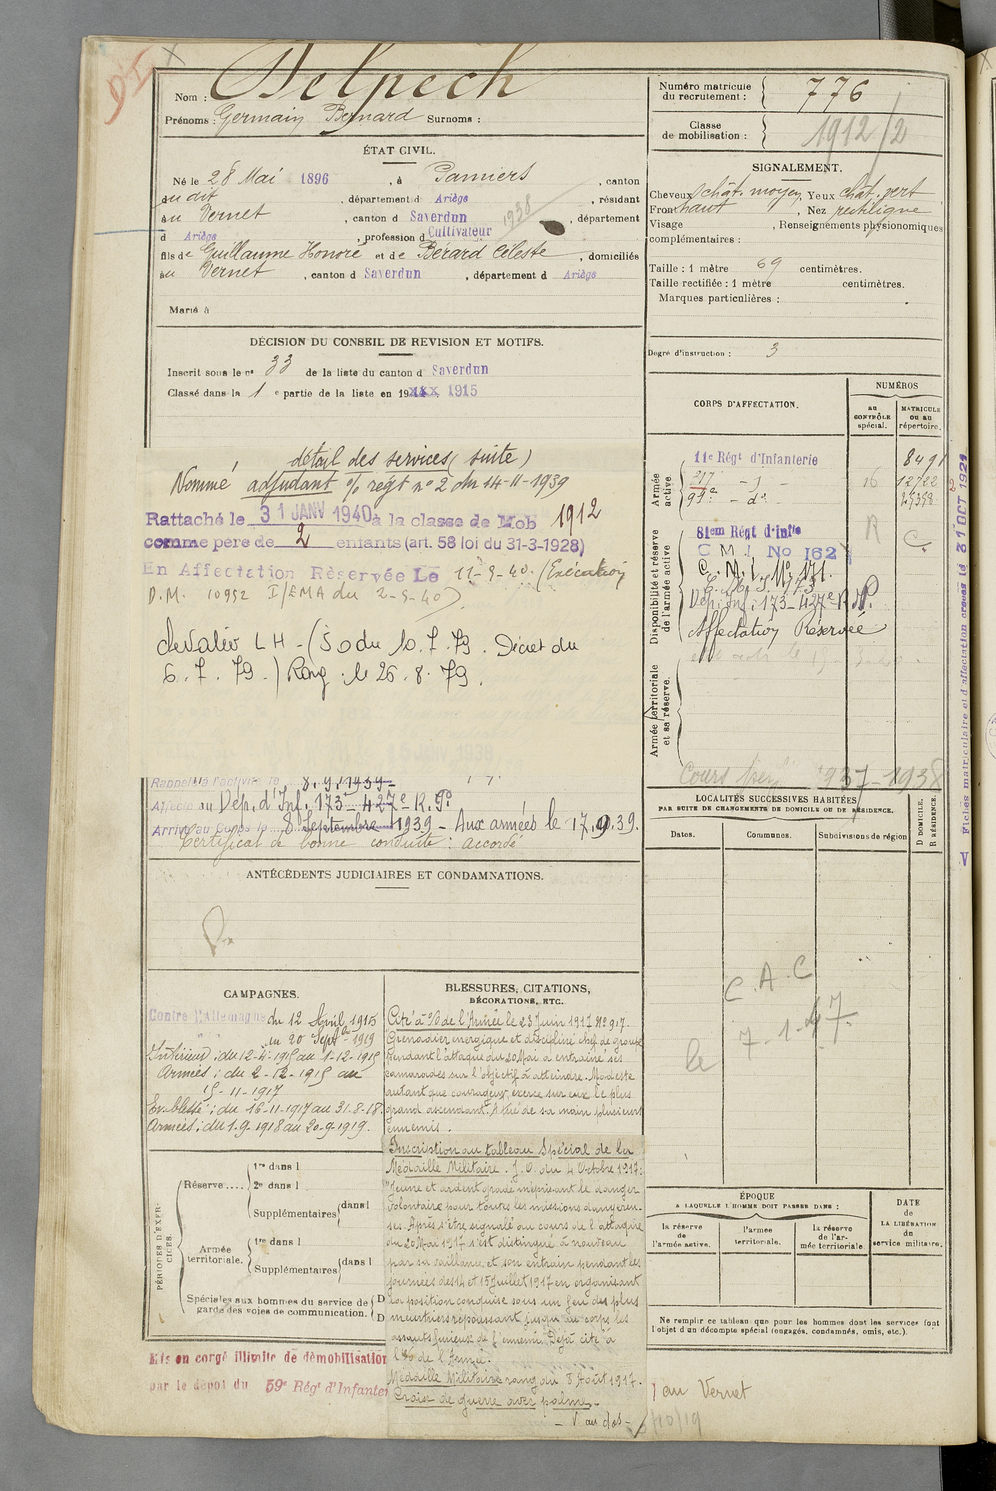 Nom : Delpech
Prénoms : Germain Bernard Surnoms :
ÉTAT CIVIL.
Né le 28 Mai 1896, à Pamiers, canton
du dit, département d Ariège, résidant
au Vernet, canton d Saverdun, département
1938
d Ariège, profession d Cultivateur
fils de Guillaume Honoré et de Bérard Céleste, domiciliés
au Vernet, canton d Saverdun, département d Ariège
Marié à
DÉCISION DU CONSEIL DE REVISION ET MOTIFS.
Inscrit sous le n° 33 de la liste du canton d Saverdun
Classé dans la 1 e partie de la liste en 19xxx 1915
détail des services (suite)
Nommé adjudant % régt n° 2 du 14-11-1939
Rattaché le 31 JANV 1940 à la classe de Mob 1912
comme père de 2 enfants (art. 58 loi du 31-3-1928)
En Affectation Réservée Le 11-9-40. (Exécution
D.M. 10952 I/EMA du 2-9-40).
chevalier LH - (JO du 10.7.79. Décret du
6.7.79.) Rang le 26.8.79.
Rappelé à l'activité le 8.9.1939
Affecté au Dép. d'Inf. 173 - 427e R.P.
Arrivé au Corps le 8 Septembre 1939 - Aux armées le 17.9.39.
Certificat de bonne conduite : accordé
ANTÉCÉDENTS JUDICIAIRES ET CONDAMNATIONS.
CAMPAGNES.
Contre l'Allemagne du 12 April 1915
au 20 Septbre 1919
Intérieur : du 12-4-1915 au 1-12-1915
Armées : du 2-12-1915 au
15-11-1917
En blessé : du 16-11-1917 au 31-8-18.
Armées : du 1.9.1918 au 20-9-1919.
PÉRIODES D'EXERCICES.
Réserve.... 1re dans l
2e dans l
Supplémentaires dans l
Armée territoriale. 1re dans l
Supplémentaires dans l
Spéciales aux hommes du service de garde des voies de communication. D
D
Mis en congé illimité de démobilisation
par le dépôt du 59e Régt d'Infanter
BLESSURES, CITATIONS,
DÉCORATIONS, ETC.
Cité à l'O/ de l'Armée le 23 Juin 1917 N° 917
Grenadier énergique et discipliné chef de groupe
pendant l'attaque du 20 Mai a entrainé ses
camarades sur l'objectif à atteindre. Modeste
autant que courageux, exerce sur eux le plus
grand ascendant. A tué de sa main plusieurs
ennemis.
Inscription au tableau Spécial de la
Médaille Militaire. J.O. du 4 Octobre 1917:
"Jeune et ardent gradé méprisant le danger
volontaire pour toutes les missions dangereu-
ses. Après s'être signalé au cours de l'attaque
du 20 Mai 1917 s'est distingué à nouveau
par sa vaillance et son entrain pendant les
journées des 14 et 15 Juillet 1917 en organisant
la position conquise sous un feu des plus
meurtriers repoussant jusqu'au corps les
assauts furieux de l'ennemi. Déjà cité à
l'O/ de l'Armée.
Médaille Militaire rang du 8 Août 1917.
Croix de guerre avec palme.
- V. au dos -
Numéro matricule du recrutement : 776
Classe de mobilisation : 1912/2
SIGNALEMENT.
Cheveux chât. moyen, Yeux chât. vert
Front haut, Nez rectiligne
Visage , Renseignements physionomiques
complémentaires :
Taille : 1 mètre 69 centimètres.
Taille rectifiée : 1 mètre centimètres.
Marques particulières :
Degré d'instruction : 3
CORPS D'AFFECTATION.
NUMÉROS
AU CONTRÔLE spécial.
MATRICULE OU AU répertoire.
Armée active.
11e Régt d'Infanterie 8491
217e - d° - 16 12722
59e - d° - 27398
Disponibilité et réserve de l'armée active
81em Régt d'Infie R
C M I No 162 C.
C. M. I. N° 171.
Dép. inf. 173 - 427e R.P.
Affectation Réservée
Armée territoriale et sa réserve.
1937-1938
LOCALITÉS SUCCESSIVES HABITÉES
PAR SUITE DE CHANGEMENTS DE DOMICILE OU DE RÉSIDENCE.
Dates.
Communes.
Subdivisions de région
D DOMICILE. R RÉSIDENCE.
C.A.C
le 7-1-47.
ÉPOQUE
A LAQUELLE L'HOMME DOIT PASSER DANS :
la réserve de l'armée active.
l'armée territoriale.
la réserve de l'armée territoriale.
DATE de LA LIBÉRATION du service militaire.
Ne remplir ce tableau que pour les hommes dont les services font
l'objet d'un décompte spécial (engagés, condamnés, omis, etc.).
au Vernet
/10/19
V Fiches matriculaire et d'affectation créées le 31 OCT 1921